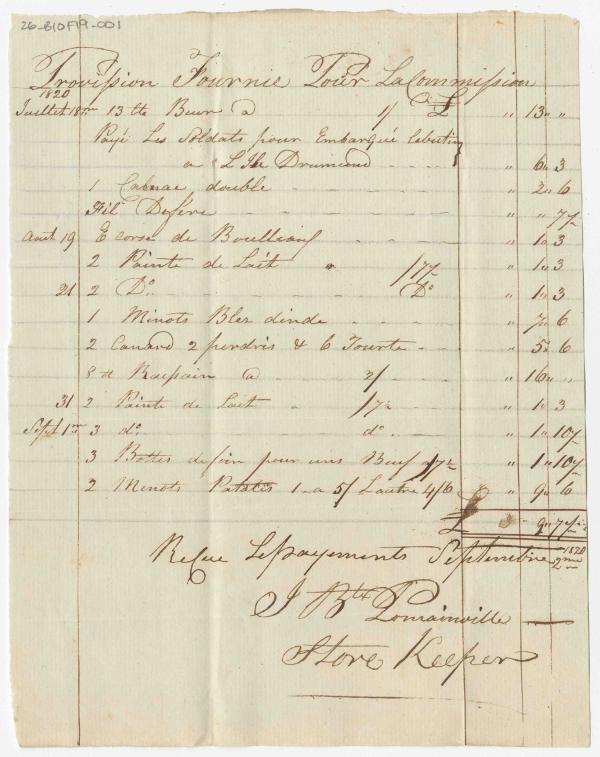 26-B10F19-001
Provission Fournie Pour La Commission
1820
Juillet 18me 13 lb Beur a 1/ £ " 13 " "
Payé Les Soldats pour Embarqué
a L'Ile Drumond " 6 " 3
1 double " 2 " 6
Fil " " 7½
Aout 19 Ecorse de " 1 " 3
2 Painte de Lait " /7½ " 1 " 3
21 2 Do. Do " 1 " 3
1 Minots Blez dinde " 7 " 6
2 Canard 2 perdris & 6 Tourte " 5 " 6
8 lb a 2/ " 16 " "
31 2 Painte de Lait " /7½ " 1 " 3
Sept 1er 3 do. do. " 1 " 10½
3 Bottes de foin pour uns Beuf /7½ " 1 " 10½
2 Minots Patates 1 a 5/ Lautre 4/6 " 9 " 6
£ 9 " 7½
Recue Le payements Septembre 2me 1820
J Bte Pomainville
Store Keeper